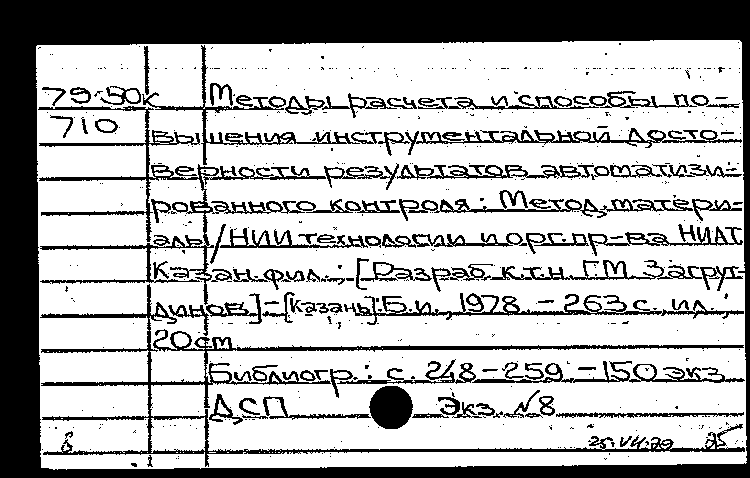 79-50к Методы расчета и способы по-
710 вышения инструментальной досто-
верности результатов автоматизи-
рованного контроля: Метод. матери-
алы/НИИ технологии и орг. пр-ва НИАТ,
Казан. фил.; [Разраб. к.т.н. Г.М. Загрут-
динов]. - [Казань]: Б.и., 1978. - 263 с., ил.;
20 cm
Библиогр.: с. 248-259. - 150 экз.
ДСП Экз. №8
25